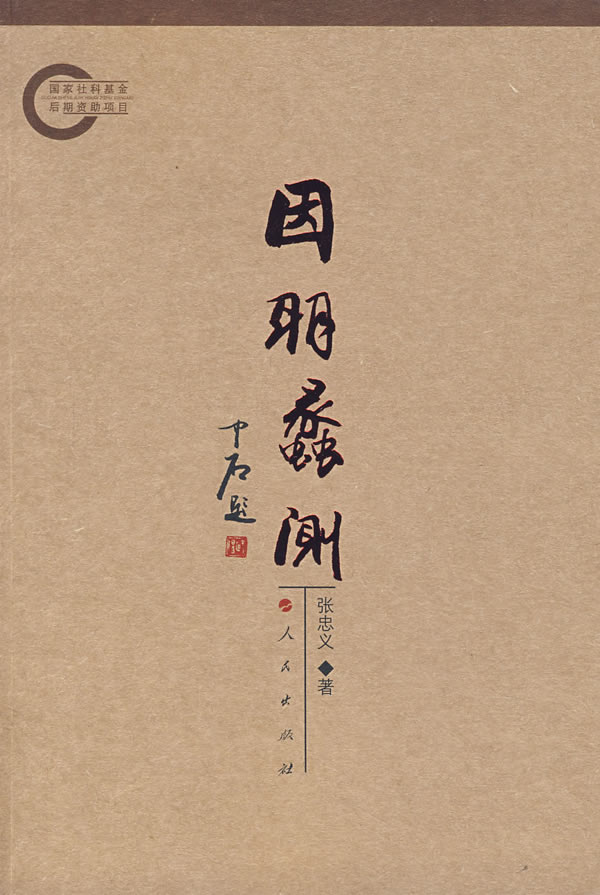 国家社科基金
后期资助项目
因明蠡测
中石题
张忠义◆著
人民出版社